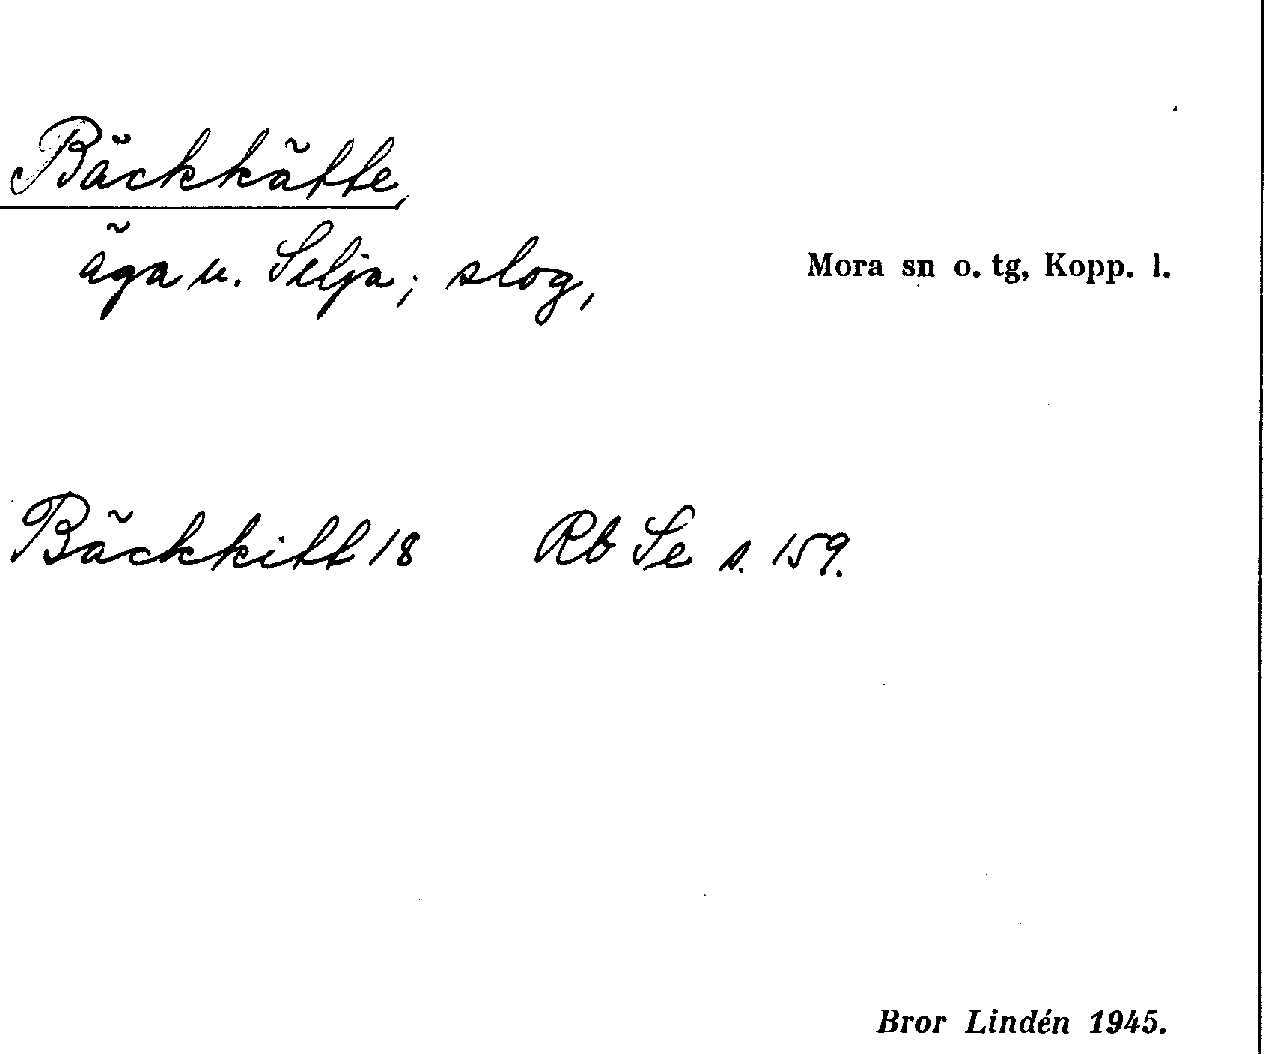 Bäckkätte,
äga u. Selja; slog,
Mora sn o. tg, Kopp. l.
Bäckkitt 18 Rb Se s. 159.
Bror Lindén 1945.